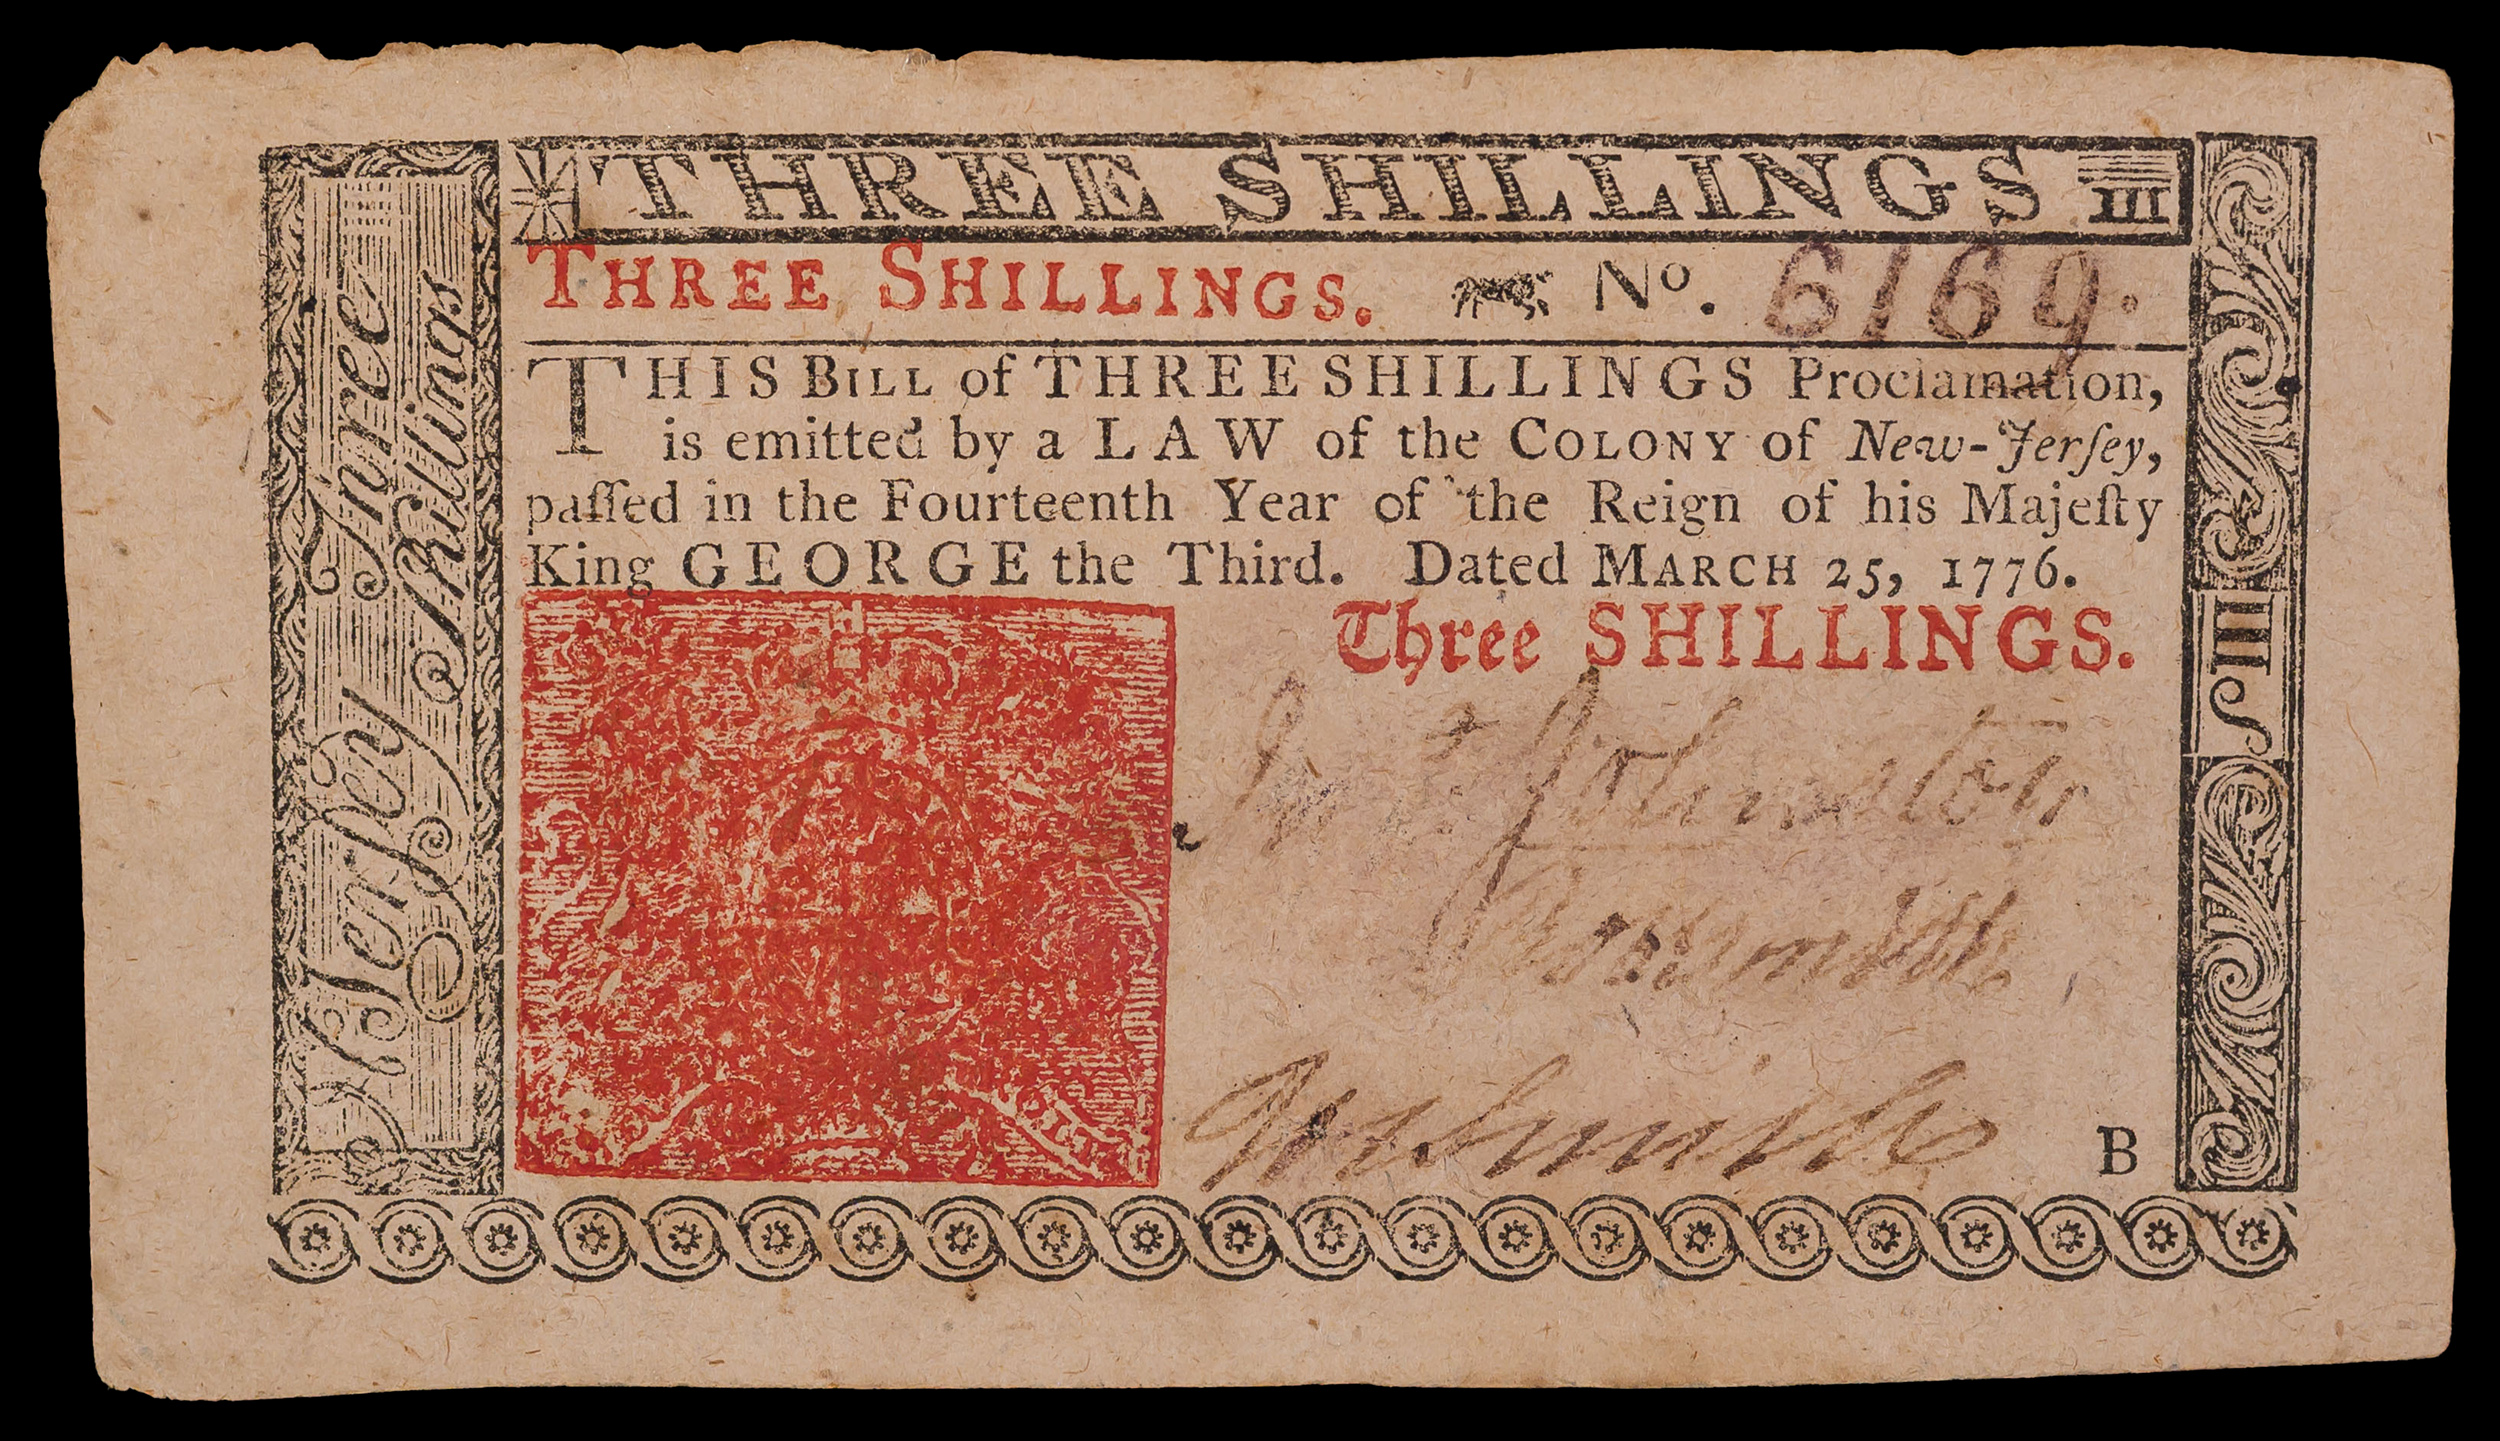 THREE SHILLINGS III
THREE SHILLINGS. No. 6169.
THIS BILL of THREE SHILLINGS Proclamation,
is emitted by a LAW of the COLONY of New-Jerſey,
paſſed in the Fourteenth Year of the Reign of his Majeſty
King GEORGE the Third. Dated MARCH 25, 1776.
Three SHILLINGS.
Johnston
Smith
B
Jerſey Three
Shillings
III S